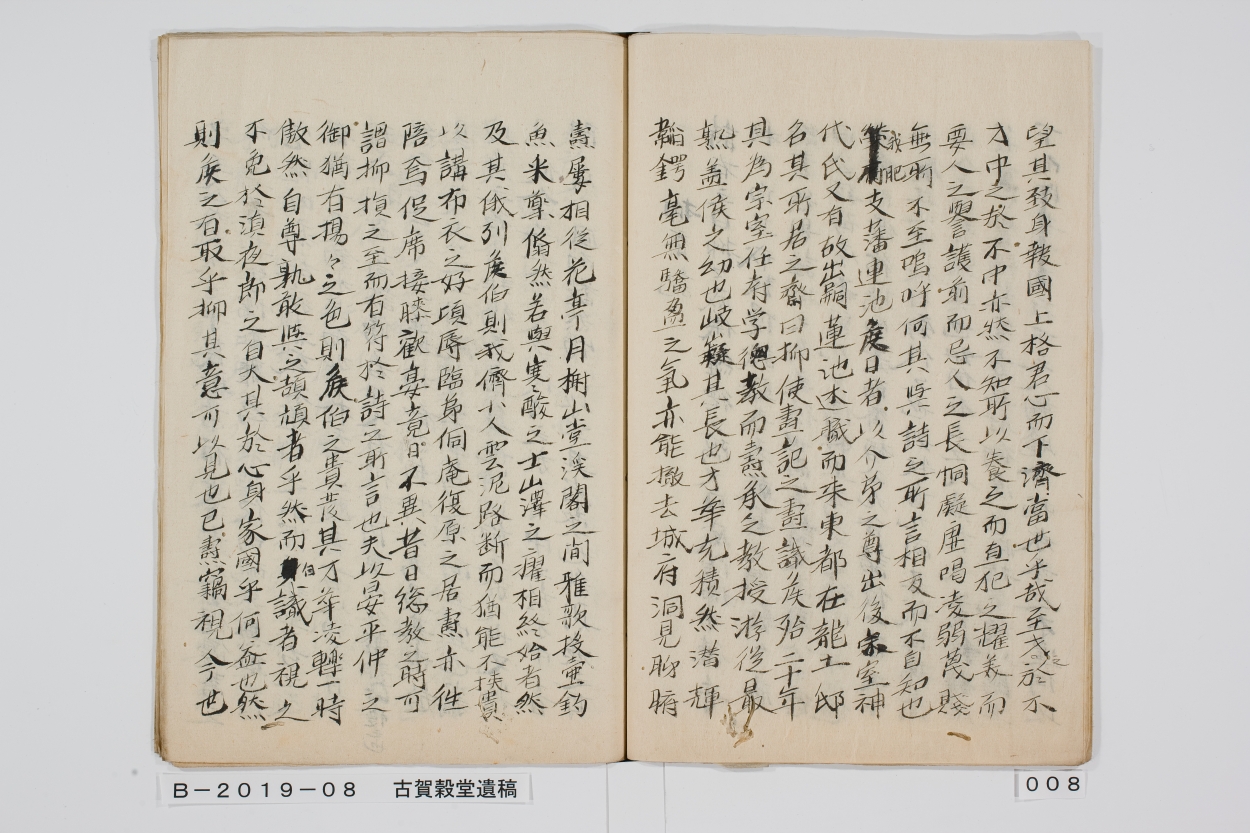 望其致身報國上格君心而下濟當世乎哉至於不
才中之於不中亦然不知所以養之而直犯之耀義而
要人之譽護前而忌人之長恫疑虛喝凌弱蔑賤
無所不至嗚呼何其與詩之所言相友而不自知也
我肥
支藩連池侯日者以介弟之尊出後宗室神
代氏又有故出嗣蓮池述職而来東都在龍土邸
名其所居之齋曰抑使燾記之燾識侯殆二十年
其為宗室任府学德教而燾承之教授游從最
熟蓋侯之幼也岐嶷其長也才華充積然潜輝
韜鍔毫無驕盈之氣亦能撤去城府洞見肺腑
燾屡相從花亭月榭山堂溪閣之間雅歌投壷釣
魚米藥翛然若與寒酸之士山澤之癯相終始者然
及其俄列侯伯則我儕小人雲泥路断而猶能不挟貴
以講布衣之好項辱臨弟侗庵復原之居燾亦往
陪焉促席接膝歡宴竟日不異昔日総教之時可
謂抑損之至而有符於詩之所言也夫以晏平仲之
御猶有揚々之色則侯伯之貴茂其才華凌轢一時
傲然自尊孰敢與之頡頏者乎然而自識者視之
不免於滇夜郎之自大其於心身家國乎何益也然
則侯之有取乎抑其意可以見也已燾竊視今世
B－2019－08　古賀穀堂遺稿
008